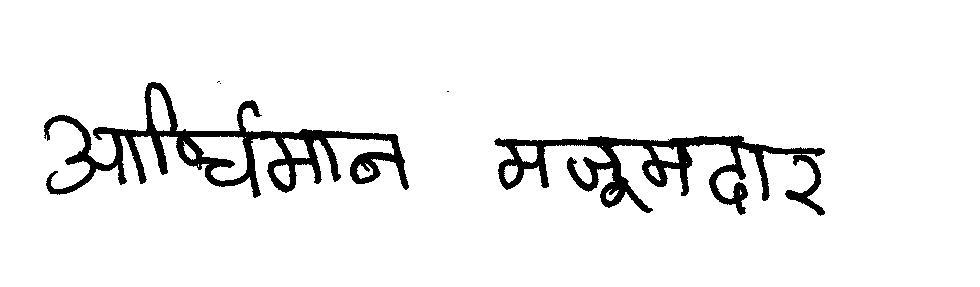 आर्ष्यिमान मजूमदार